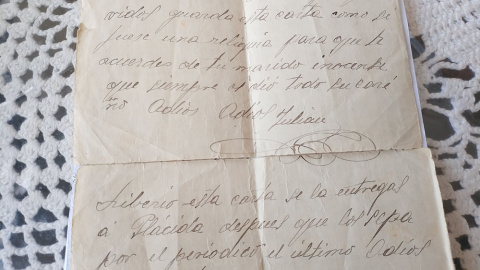 vidos guarda esta carta como si
fuese una reliquia para que te
acuerdes de tu marido inocente
que siempre te dió todo su cari
ño Adios Adios Julian
Liberio esta carta se la entregas
á Plácida despues que los sepa
por el periodico el último Adios